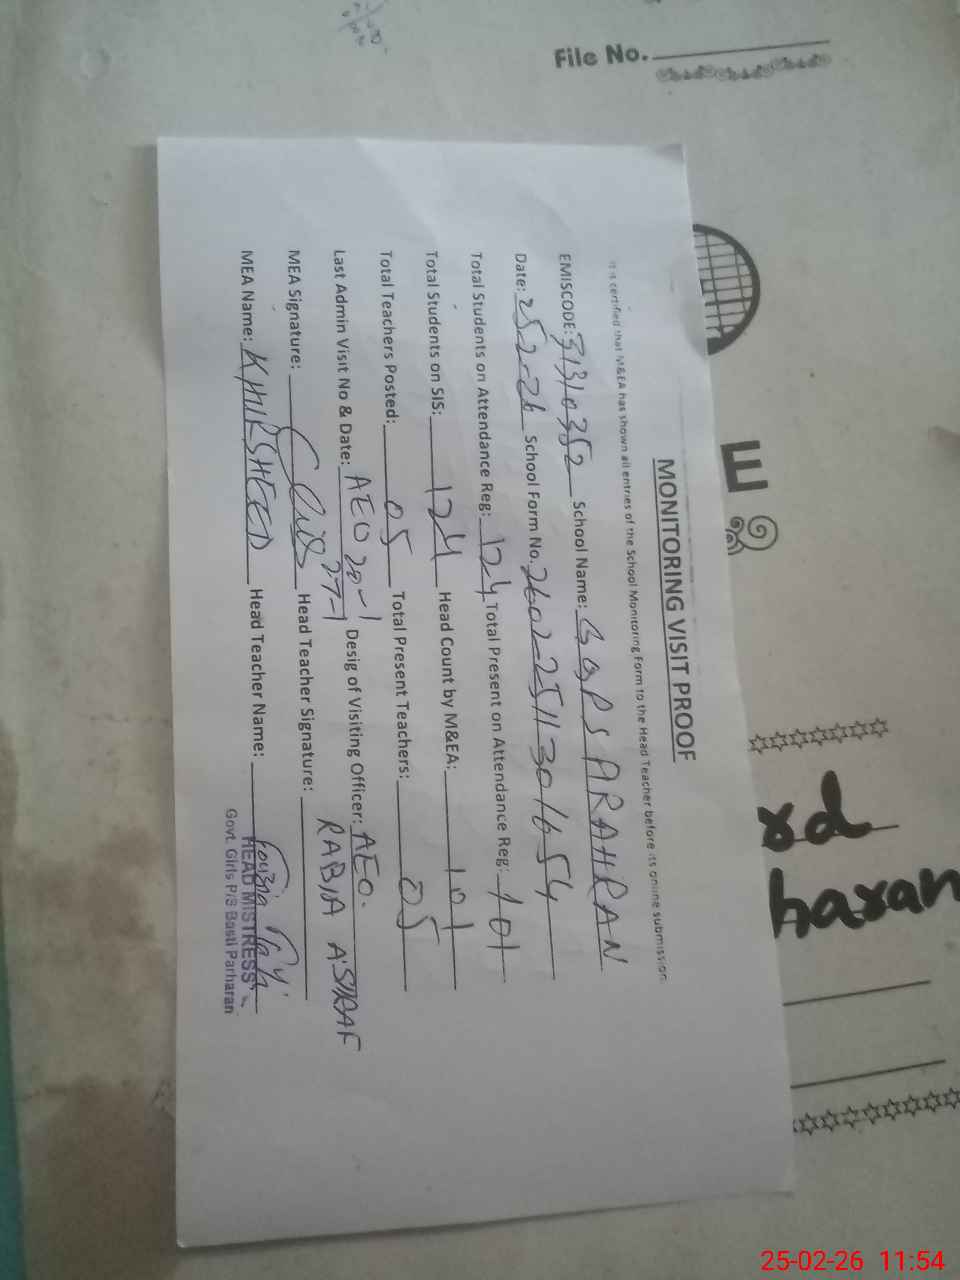 File No.
MONITORING VISIT PROOF
It is certified that M&EA has shown all entries of the School Monitoring Form to the Head Teacher before its online submission.
EMISCODE: 31310352 School Name: GGPS ARAHRAN
Date: 25-2-26 School Form No. 2602-2511301654
Total Students on Attendance Reg: 124 Total Present on Attendance Reg: 101
Total Students on SIS: 124 Head Count by M&EA: 101
Total Teachers Posted: 05 Total Present Teachers: 05
Last Admin Visit No & Date: AEO 20-1 27-1 Desig of Visiting Officer: AEO. RABIA ASHRAF
MEA Signature: Head Teacher Signature:
MEA Name: KHURSHEED Head Teacher Name:
HEAD MISTRESS
Govt. Girls P/S Basti Parharan
25-02-26 11:54